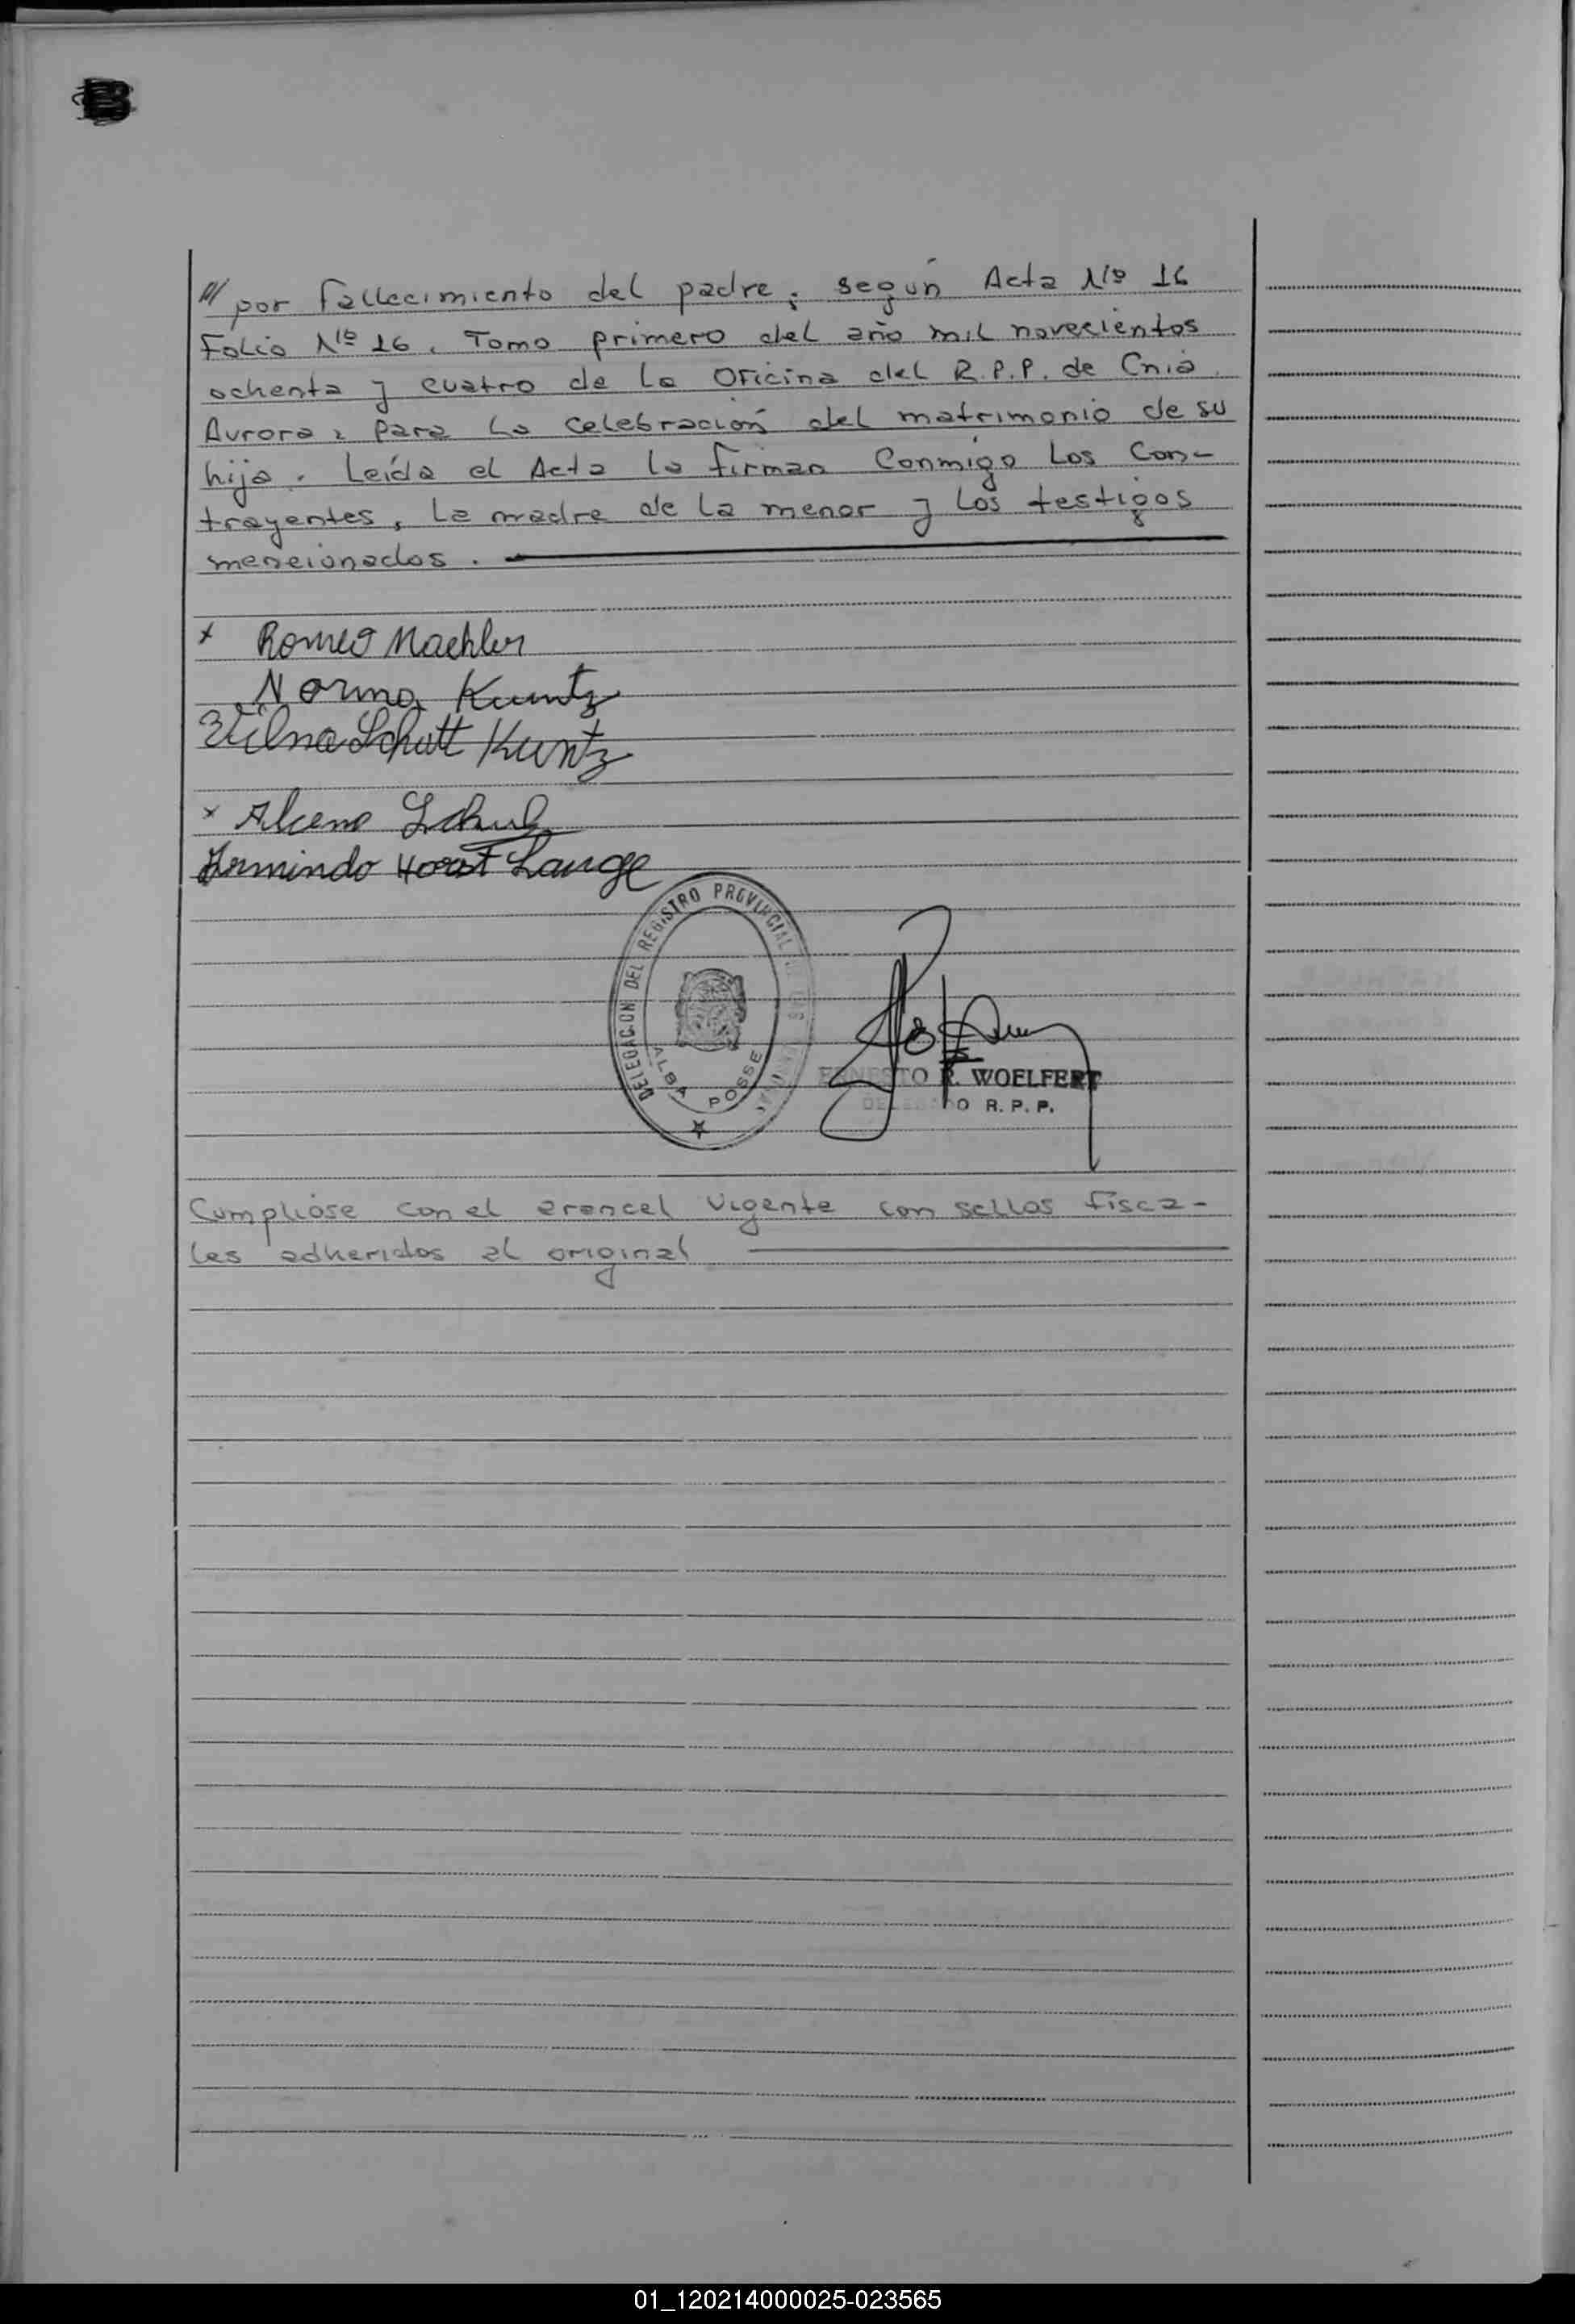 // por fallecimiento del padre; según Acta Nº 16
Folio Nº 16. Tomo primero del año mil novecientos
ochenta y cuatro de la Oficina del R.P.P. de Cnia.
Aurora, para la celebración del matrimonio de su
hija. Leída el Acta la firman conmigo los con-
trayentes, la madre de la menor y los testigos
mencionados.
x Romeo Maehler
Norma Kuntz
Vilma Schutt Kuntz
x Alceno
Armindo Horst Lange
DELEGACION DEL REGISTRO PROVINCIAL DE LAS PERSONAS
ALBA POSSE
ERNESTO R. WOELFERT
DELEGADO R. P. P.
Cumplióse con el arancel vigente con sellos fisca-
les adheridos al original
01_120214000025-023565